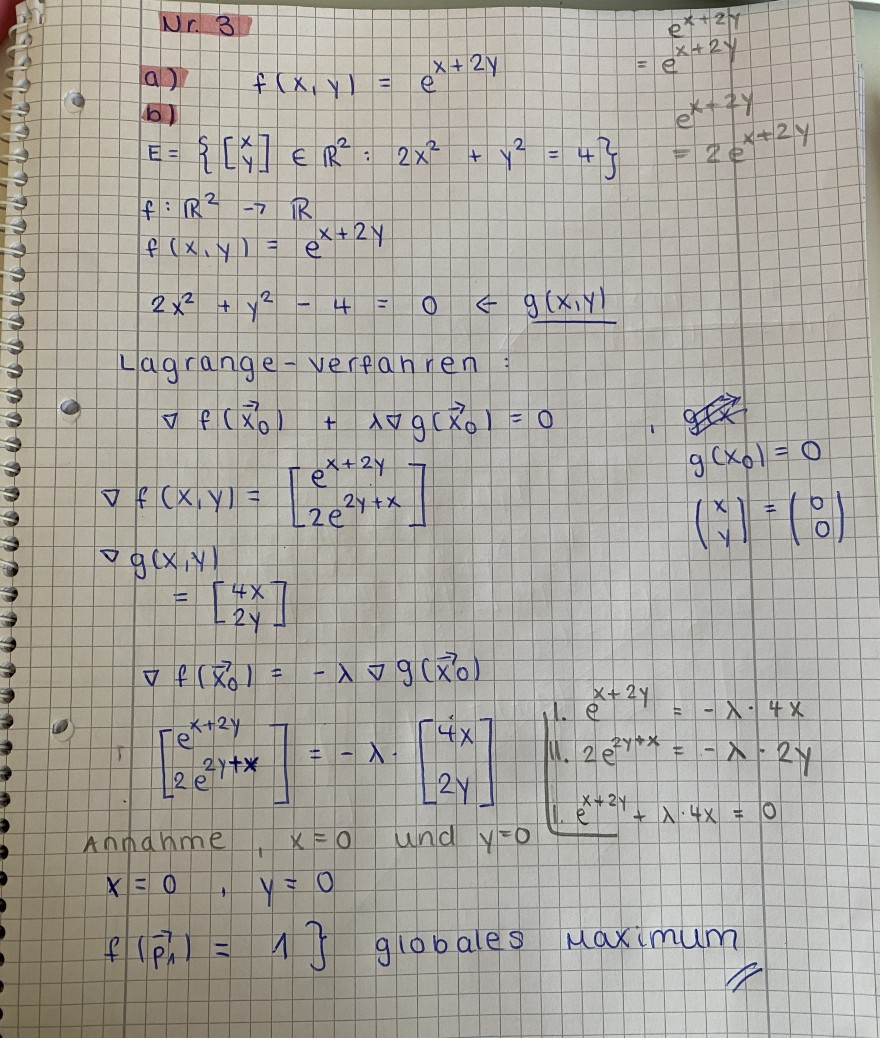 Nr. 3
e^{x+2y}
= e^{x+2y}
a) f(x,y) = e^{x+2y}
e^{x+2y}
= 2e^{x+2y}
b)
E = { [x y] ∈ ℝ² : 2x² + y² = 4 }
f : ℝ² → ℝ
f(x,y) = e^{x+2y}
2x² + y² - 4 = 0 ← g(x,y)
Lagrange-verfahren :
∇ f(x⃗₀) + λ∇g(x⃗₀) = 0 ,
g(x₀) = 0
(x y) = (0 0)
∇ f(x,y) = [e^{x+2y} 2e^{2y+x}]
∇ g(x,y)
= [4x 2y]
∇ f(x⃗₀) = -λ∇g(x⃗₀)
[e^{x+2y} 2e^{2y+x}] = -λ· [4x 2y]
I. e^{x+2y} = -λ· 4x
II. 2e^{2y+x} = -λ· 2y
I. e^{x+2y} + λ·4x = 0
Annahme , x=0 und y=0
x = 0 , y = 0
f(p⃗₁) = 1 } globales Maximum